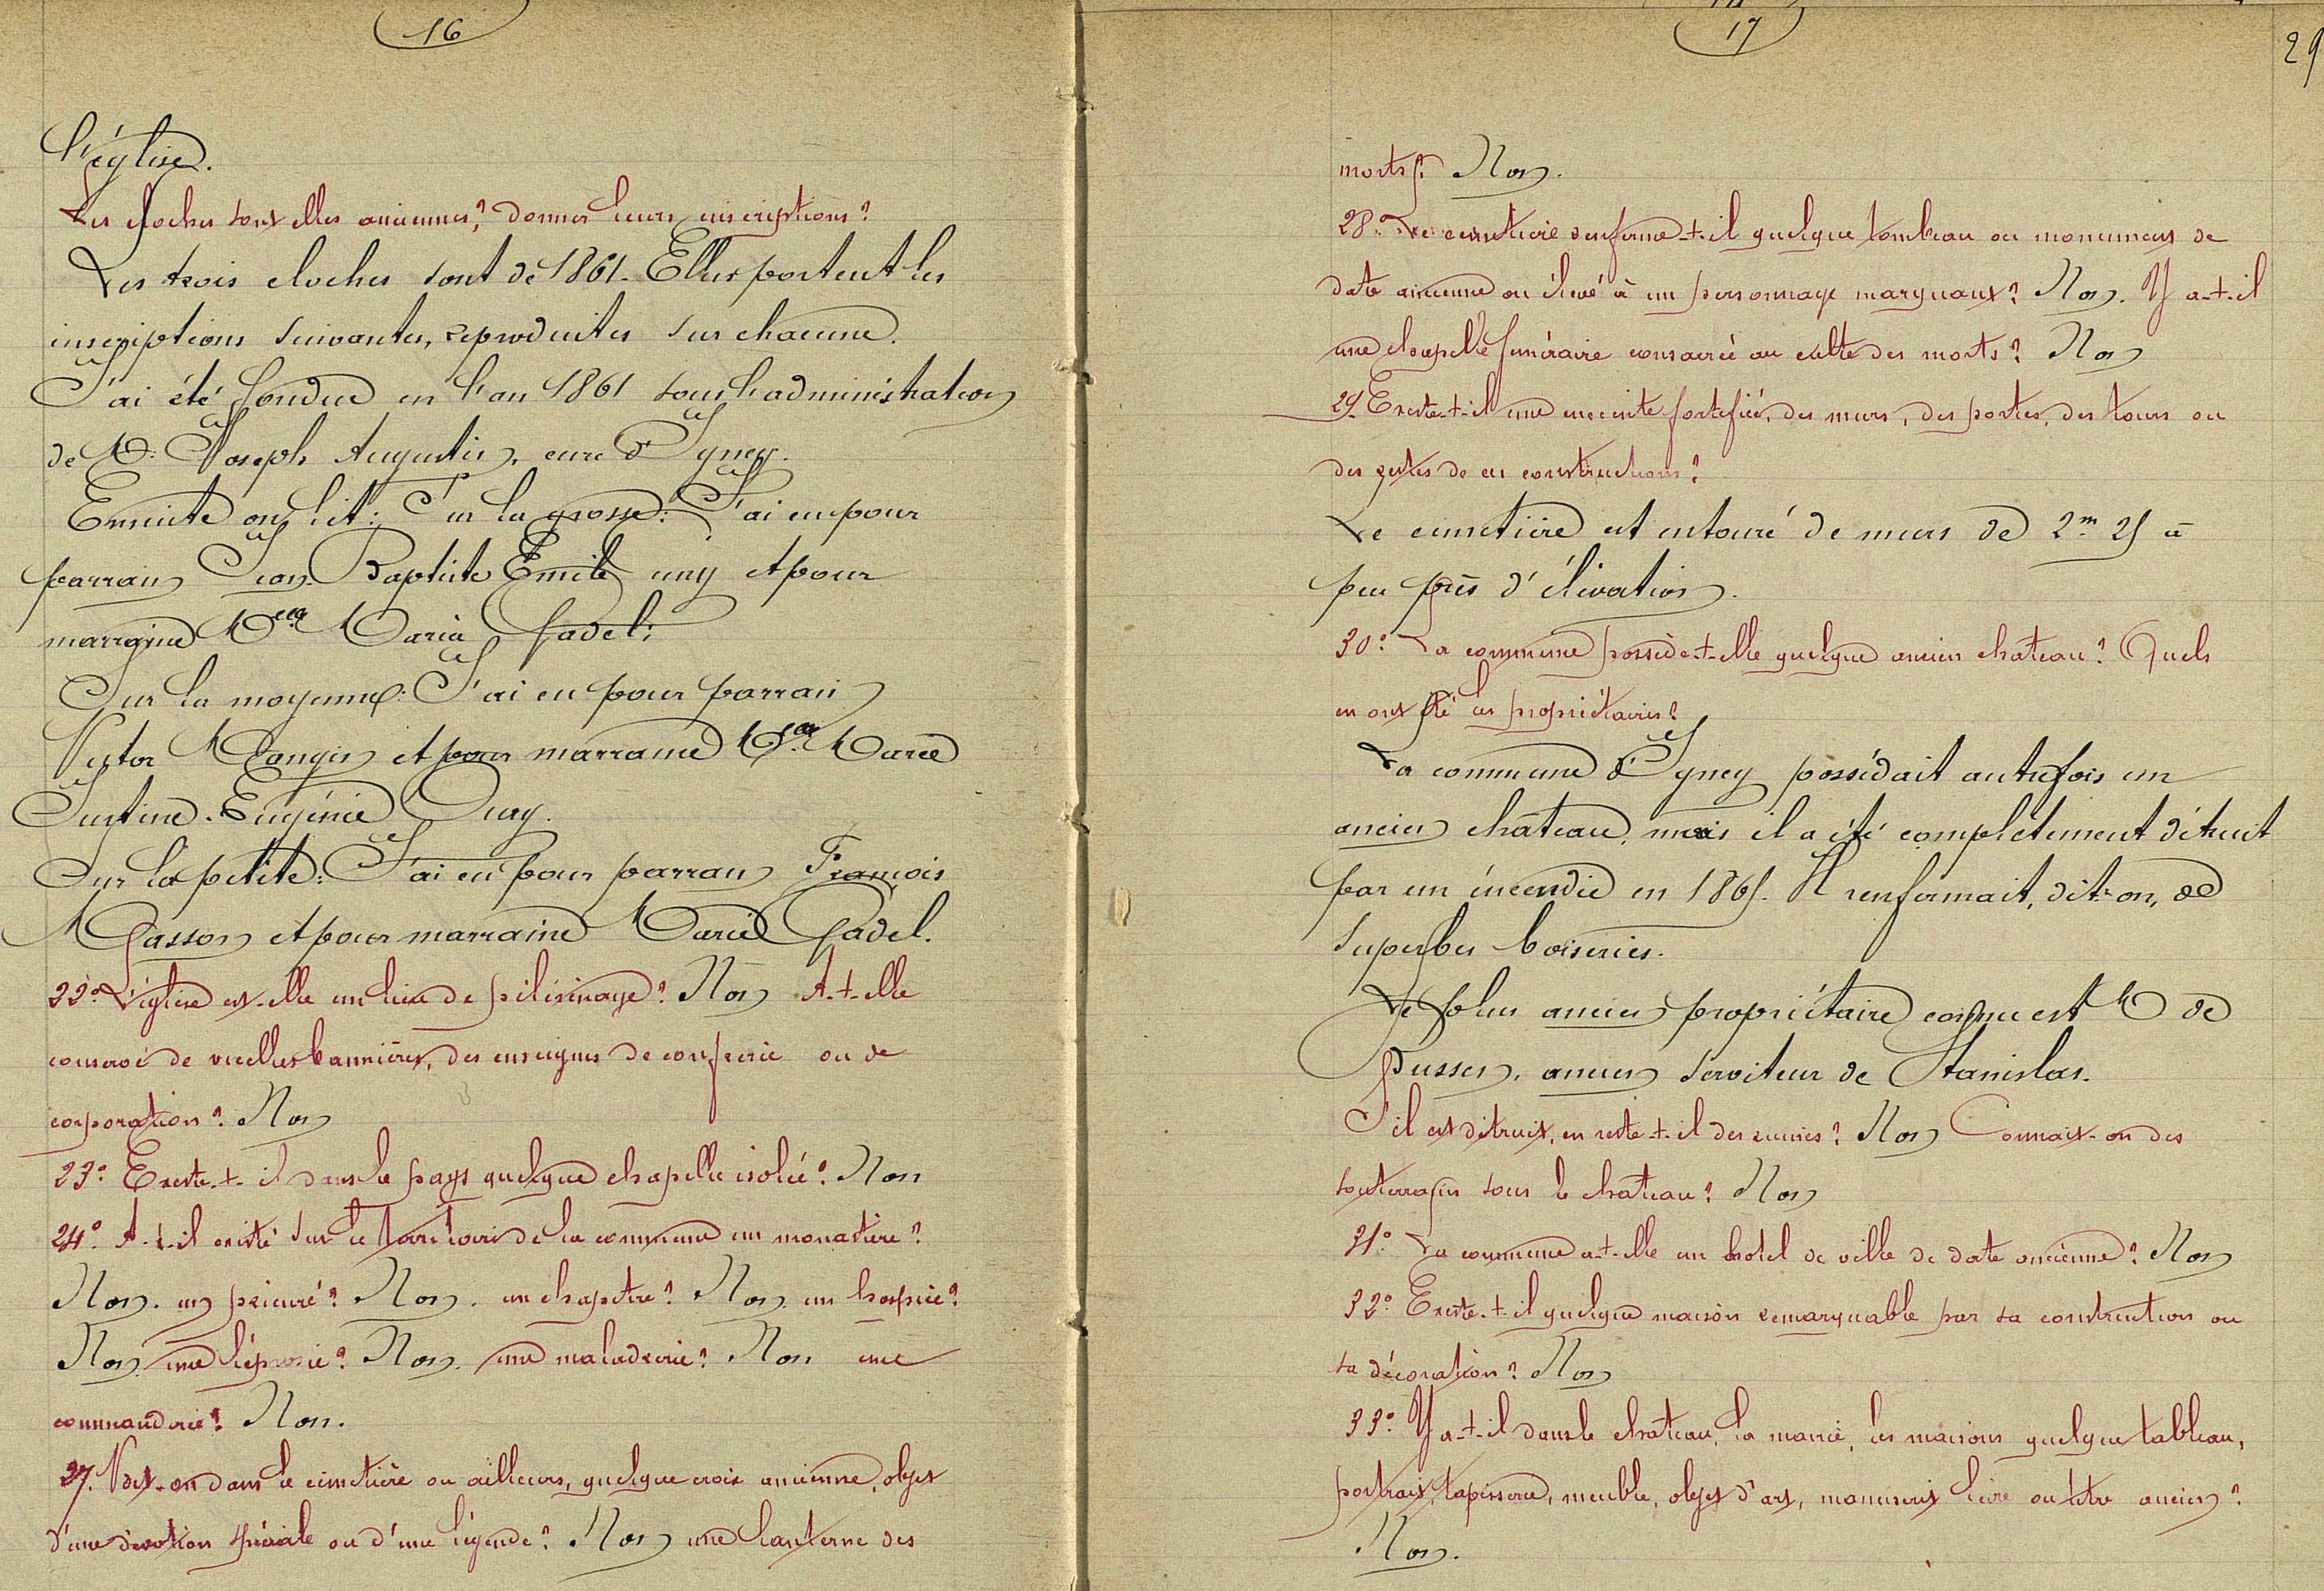 16
l'église.
Les cloches sont elles anciennes? donner leurs inscriptions?
Les trois cloches sont de 1861. Elles portent les
inscriptions suivantes, reproduites sur chacune.
J'ai été fondue en l'an 1861 sous l'administration
de M. Joseph Augustin, curé d'Igney.
Ensuite on lit: Sur la grosse: J'ai eu pour
parrain Jean-Baptiste Emile et pour
marraine Maria Gadel;
Sur la moyenne: J'ai eu pour parrain
Victor Mangin et pour marraine Marie
Justine-Eugénie
Sur la petite: J'ai eu pour parrain François
Masson et pour marraine Marie Gadel.
22º. L'église est-elle un lieu de pélérinage? Non A-t-elle
conservé de vieilles bannières, des enseignes de confrérie ou de
corporation? Non
23º. Existe-t-il dans le pays quelque chapelle isolée? Non
24º. A-t-il existé sur le territoire de la commune un monastère?
Non. un prieuré? Non. un chapitre? Non. un hospice?
Non. une léproserie? Non. une maladrerie? Non une
commanderie? Non.
27. Voit-on dans le cimetière ou ailleurs, quelque croix ancienne, objet
d'une dévotion spéciale ou d'une légende? Non une lanterne des
17
29
morts? Non.
28º. Le cimetière renferme-t-il quelque tombeau ou monument de
date ancienne ou élevé à un personnage marquant? Non. Y a-t-il
une chapelle funéraire consacrée au culte des morts? Non
29. Existe-t-il une enceinte fortifiée, des murs, des portes, des tours ou
des restes de ces constructions?
Le cimetière est entouré de murs de 2m 25 à
peu près d'élévation.
30º. La commune possède-t-elle quelque ancien chateau? Quels
en ont été les propriétaires?
La commune d'Igney possédait autrefois un
ancien château, mais il a été complètement détruit
par un incendie en 1865. Il renfermait, dit-on, de
superbes boiseries.
Le plus ancien propriétaire connu est M de
ancien serviteur de Stanislas.
S'il est détruit, en reste-t-il des ruines? Non Connait-on des
souterrains sous le chateau? Non
31º. La commune a-t-elle un hotel de ville de date ancienne? Non
32º. Existe-t-il quelque maison remarquable par sa construction ou
sa décoration? Non
33º. Y a-t-il dans le château, la mairie, les maisons quelque tableau,
portrait, tapisserie, meuble, objet d'art, manuscrit livre ou titre ancien?
Non.